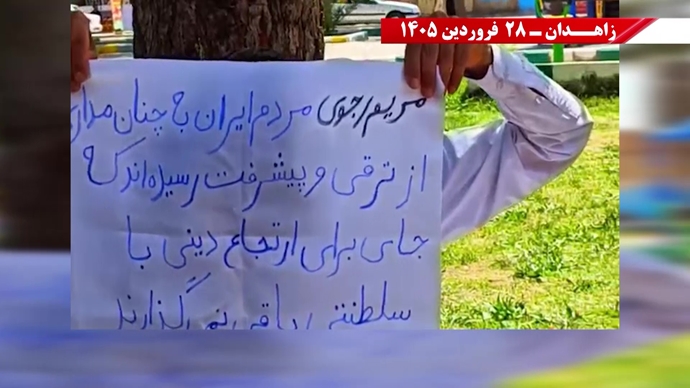 زاهدان ـ ۲۸ فروردین ۱۴۰۵
مریم رجوی مردم ایران به چنان مدارجی
از ترقی و پیشرفت رسیده‌اند که
جای برای ارتجاع دینی یا
سلطنتی باقی نمی‌گذارند